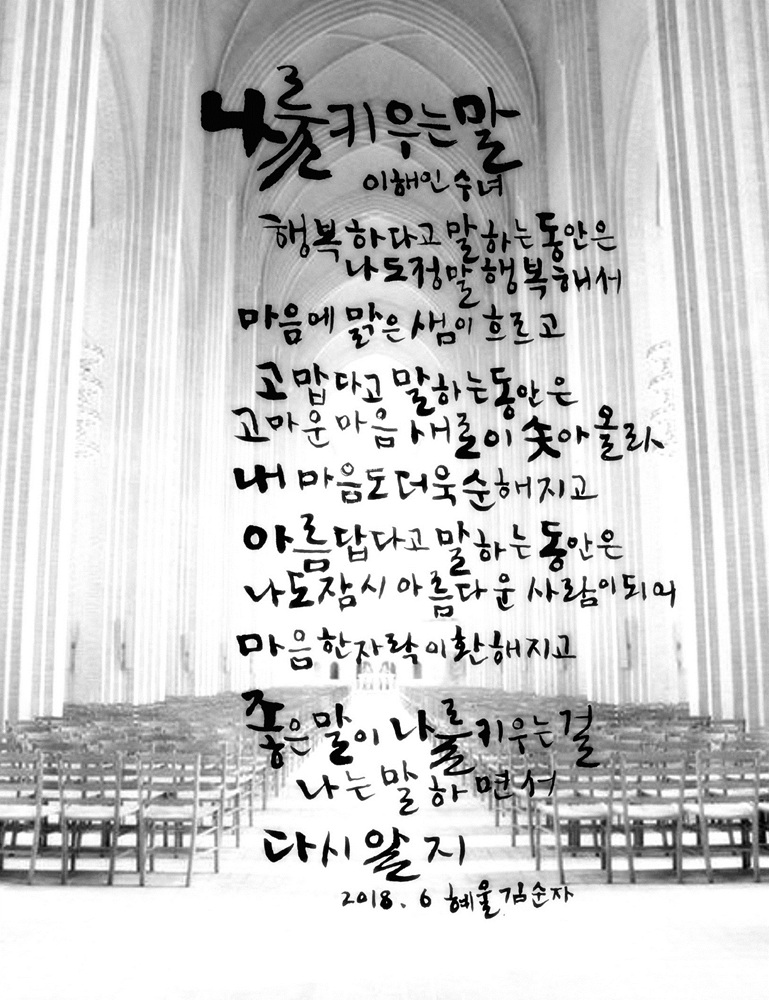 나를 키우는 말
이해인 수녀
행복하다고 말하는 동안은
나도 정말 행복해서
마음에 맑은 샘이 흐르고
고맙다고 말하는 동안은
고마운 마음 새로이 솟아올라
내 마음도 더욱 순해지고
아름답다고 말하는 동안은
나도 잠시 아름다운 사람이 되어
마음 한자락이 환해지고
좋은 말이 나를 키우는 걸
나는 말하면서
다시 알지
2018. 6 혜울 김순자